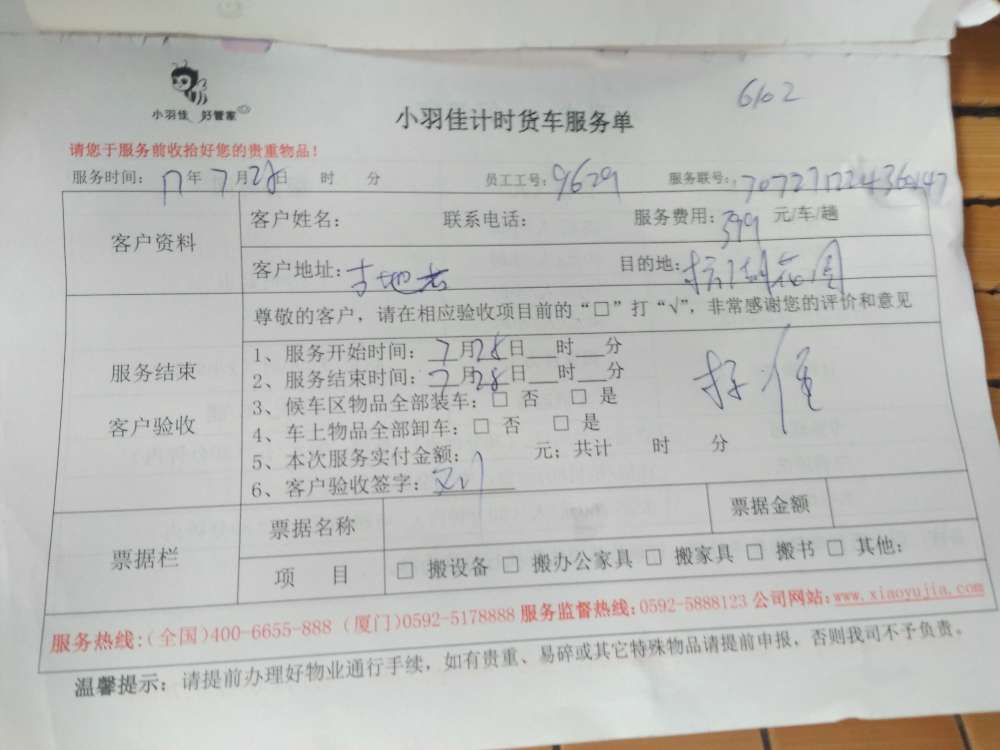 6102
小羽佳 好管家
小羽佳计时货车服务单
请您于服务前收拾好您的贵重物品！
服务时间： 17年7月28日 时 分 员工工号：9629 服务联号：
客户资料
客户姓名： 联系电话： 服务费用：399 元/车/趟
客户地址： 目的地：
尊敬的客户，请在相应验收项目前的“□”打“√”，非常感谢您的评价和意见
服务结束
客户验收
1、服务开始时间：7月28日__时__分
2、服务结束时间：7月28日__时__分
3、候车区物品全部装车：□ 否 □ 是
4、车上物品全部卸车：□ 否 □ 是
5、本次服务实付金额： 元；共计 时 分
6、客户验收签字：
票据栏
票据名称 票据金额
项 目 □ 搬设备 □ 搬办公家具 □ 搬家具 □ 搬书 □ 其他：
服务热线：（全国）400-6655-888（厦门）0592-5178888 服务监督热线：0592-5888123 公司网站：www.xiaoyujia.com
温馨提示：请提前办理好物业通行手续，如有贵重、易碎或其它特殊物品请提前申报，否则我司不予负责。